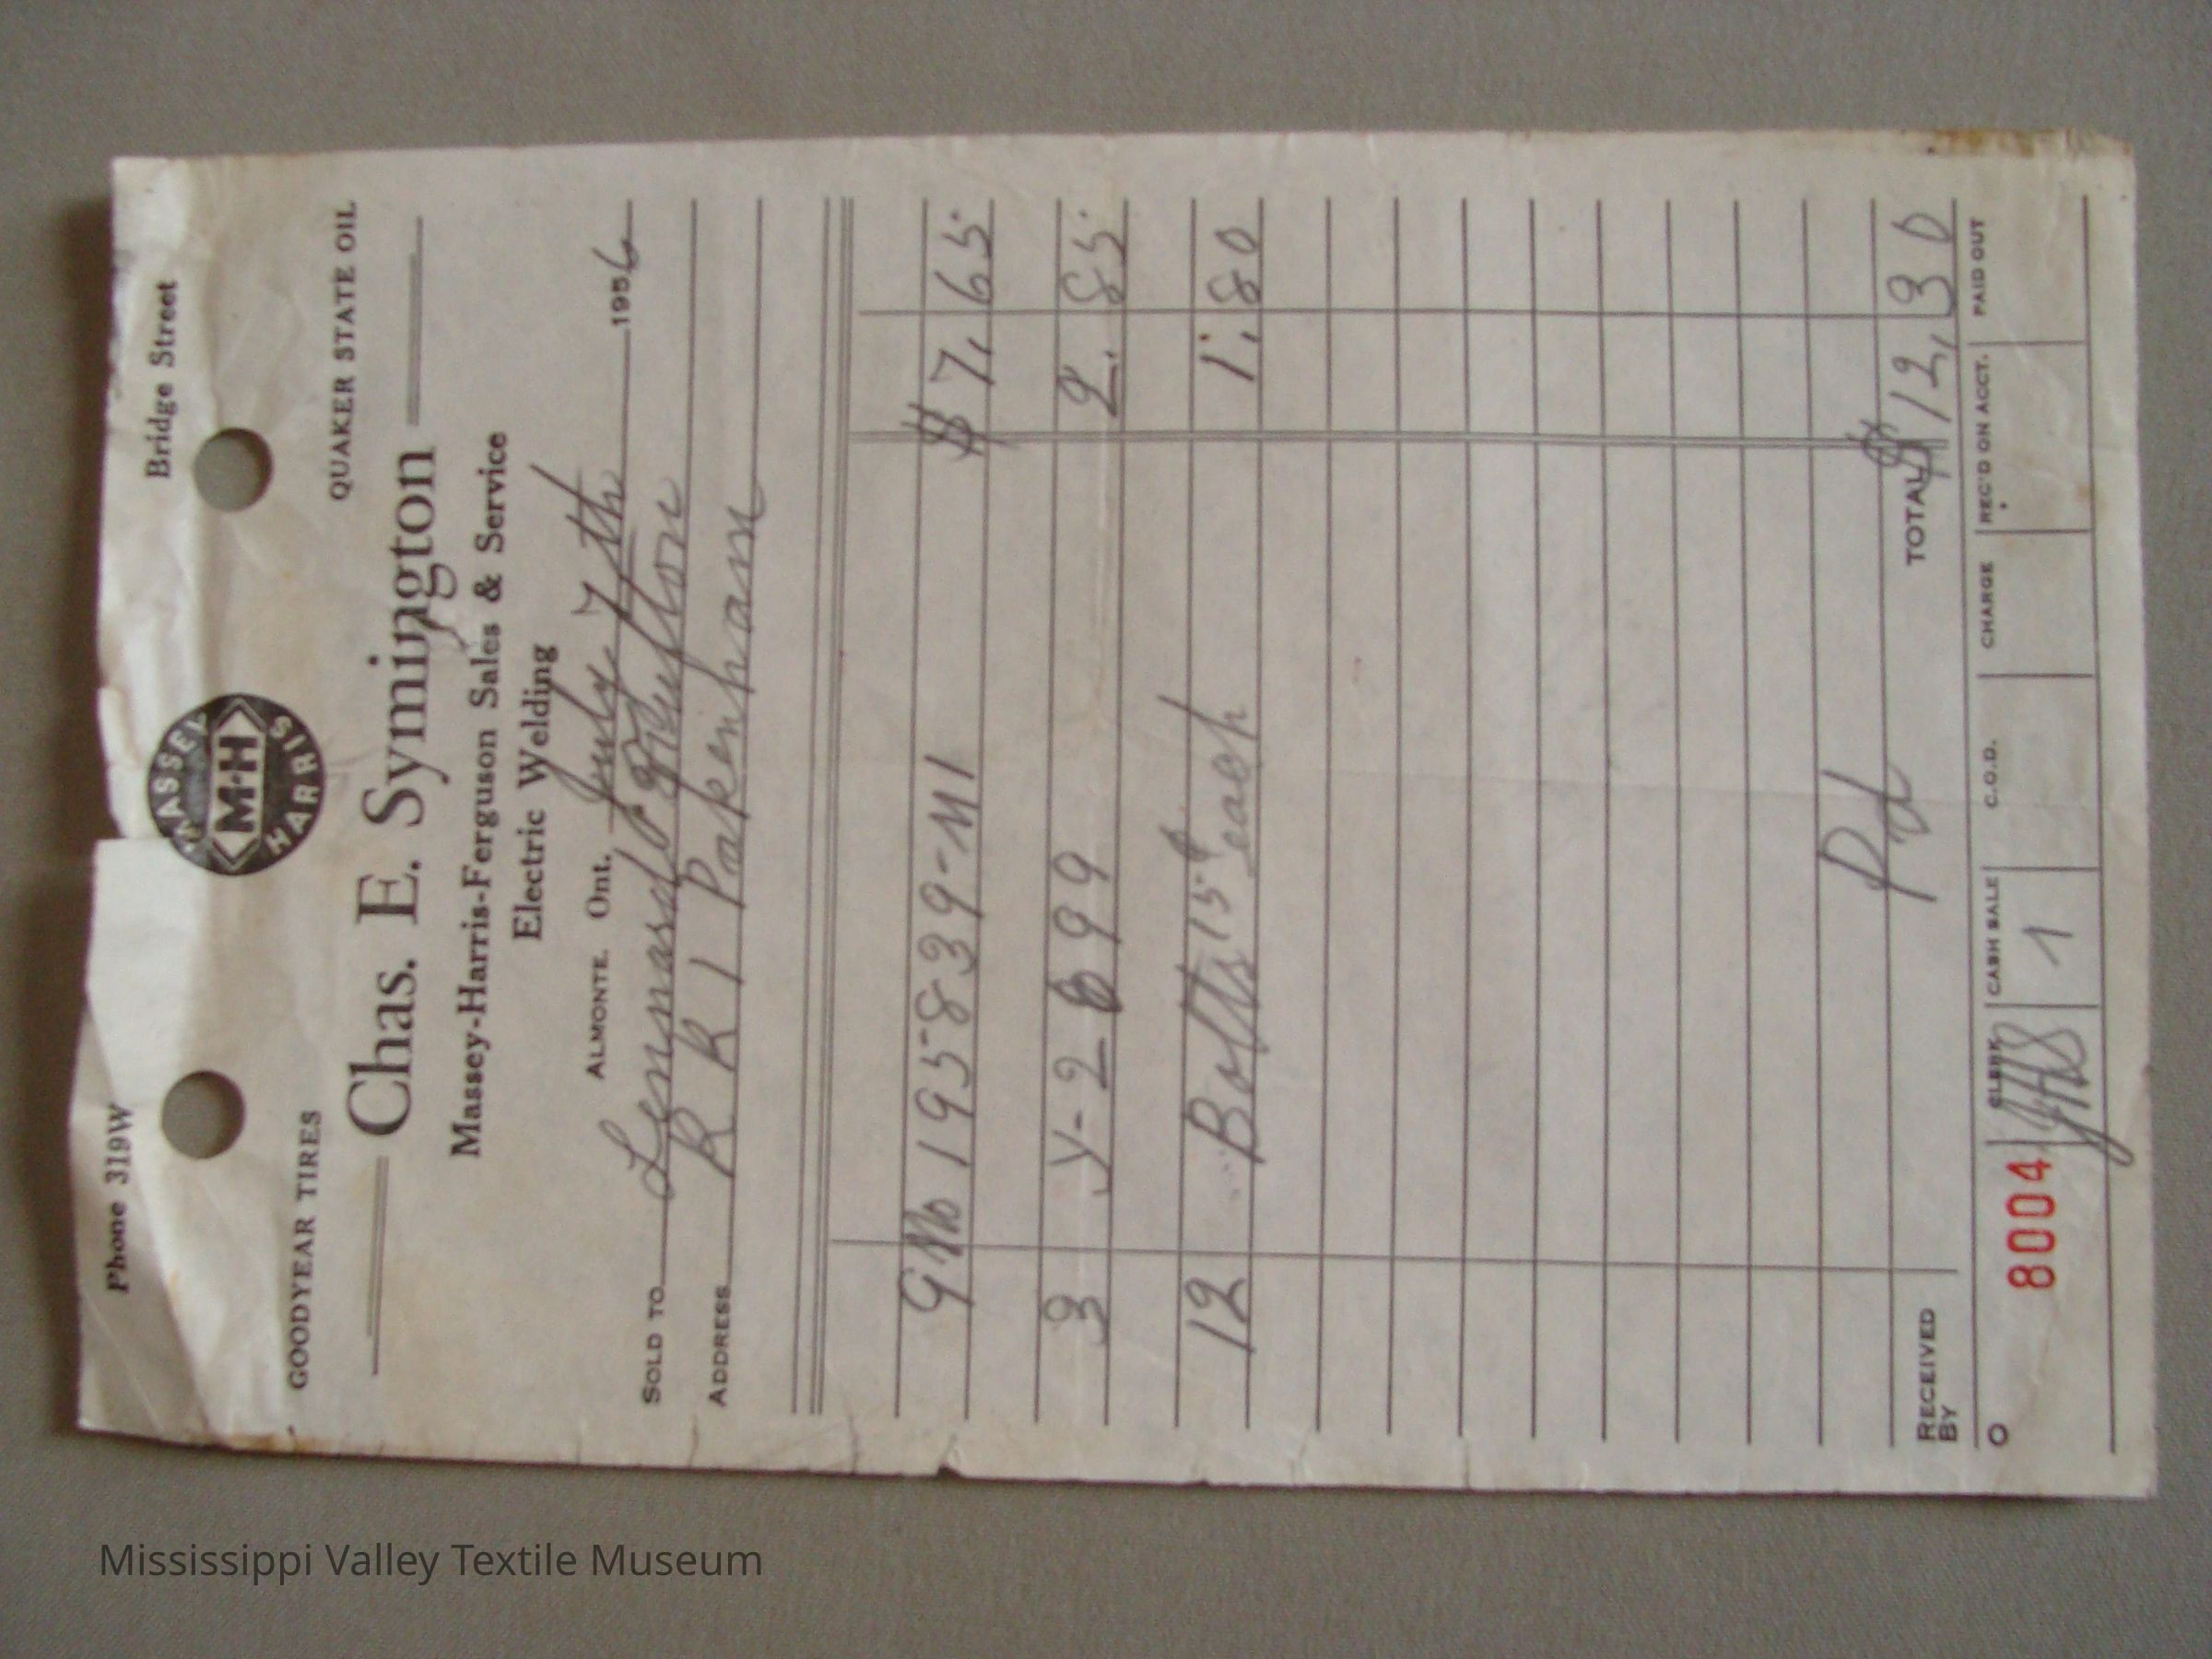 Phone 319W Bridge Street
MASSEY
M-H
HARRIS
GOODYEAR TIRES QUAKER STATE OIL
Chas. E. Symington
Massey-Harris-Ferguson Sales & Service
Electric Welding
ALMONTE. Ont. July 7th 1956
SOLD TO Fulton
ADDRESS R R 1 Pakenham
9 No 195839-M1 $ 7.65
3 Y-2699 2.85
12 Bolts 15¢ each 1.80
Pd
RECEIVED BY TOTAL $ 12.30
O 8004 CLERK CASH SALE C.O.D. CHARGE REC'D ON ACCT. PAID OUT
1
Mississippi Valley Textile Museum